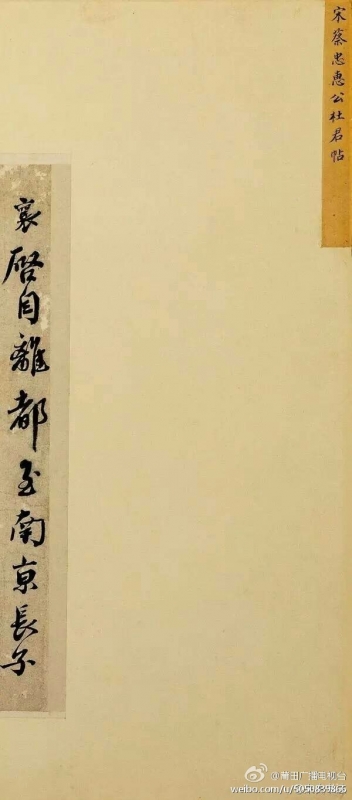 宋蔡忠惠公杜君帖
襄啓自離都至南京長子
@莆田广播电视台
weibo.com/u/5050839866